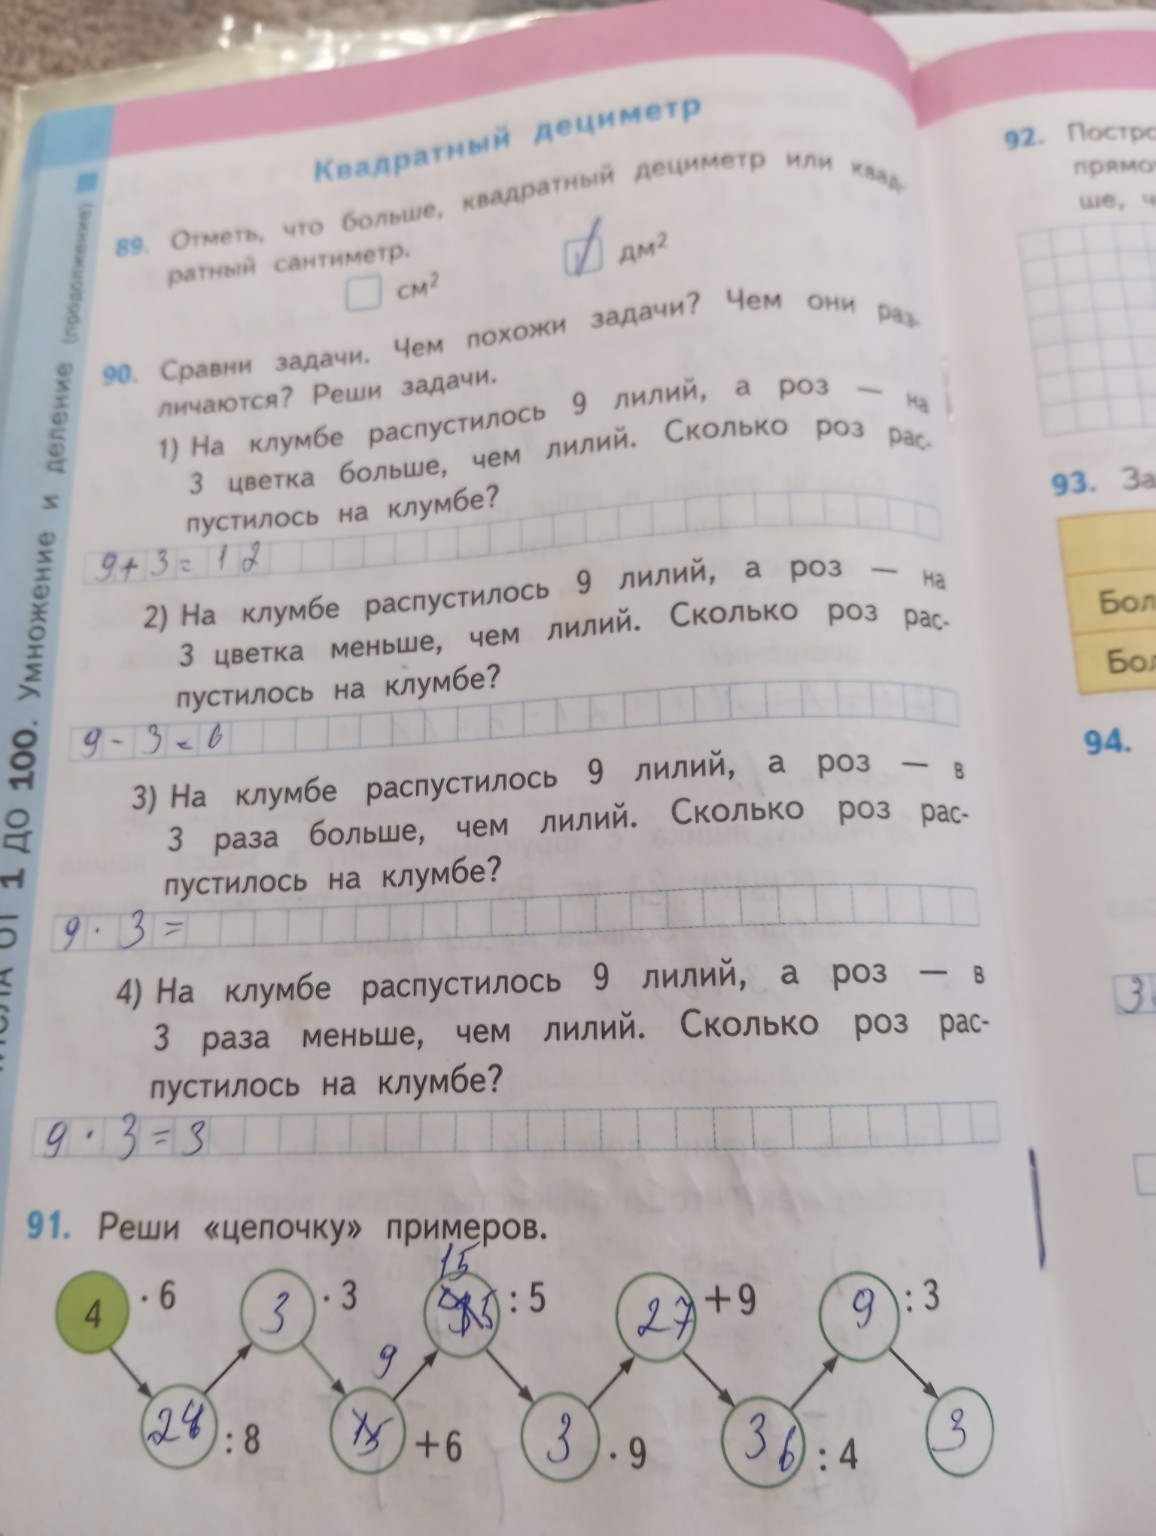 Квадратный дециметр
89. Отметь, что больше, квадратный дециметр или квад-
ратный сантиметр.
см² дм²
90. Сравни задачи. Чем похожи задачи? Чем они раз-
личаются? Реши задачи.
1) На клумбе распустилось 9 лилий, а роз — на
3 цветка больше, чем лилий. Сколько роз рас-
пустилось на клумбе?
9+3=12
2) На клумбе распустилось 9 лилий, а роз — на
3 цветка меньше, чем лилий. Сколько роз рас-
пустилось на клумбе?
9-3=6
3) На клумбе распустилось 9 лилий, а роз — в
3 раза больше, чем лилий. Сколько роз рас-
пустилось на клумбе?
9·3=
4) На клумбе распустилось 9 лилий, а роз — в
3 раза меньше, чем лилий. Сколько роз рас-
пустилось на клумбе?
9·3=3
91. Реши «цепочку» примеров.
15
4 ·6 3 ·3 :5 27 +9 9 :3
9
24 :8 15 +6 3 ·9 36 :4 3
от 1 до 100. Умножение и деление (продолжение)
92. Постро
прямо
ше, ч
93. За
Бол
Бол
94.
3